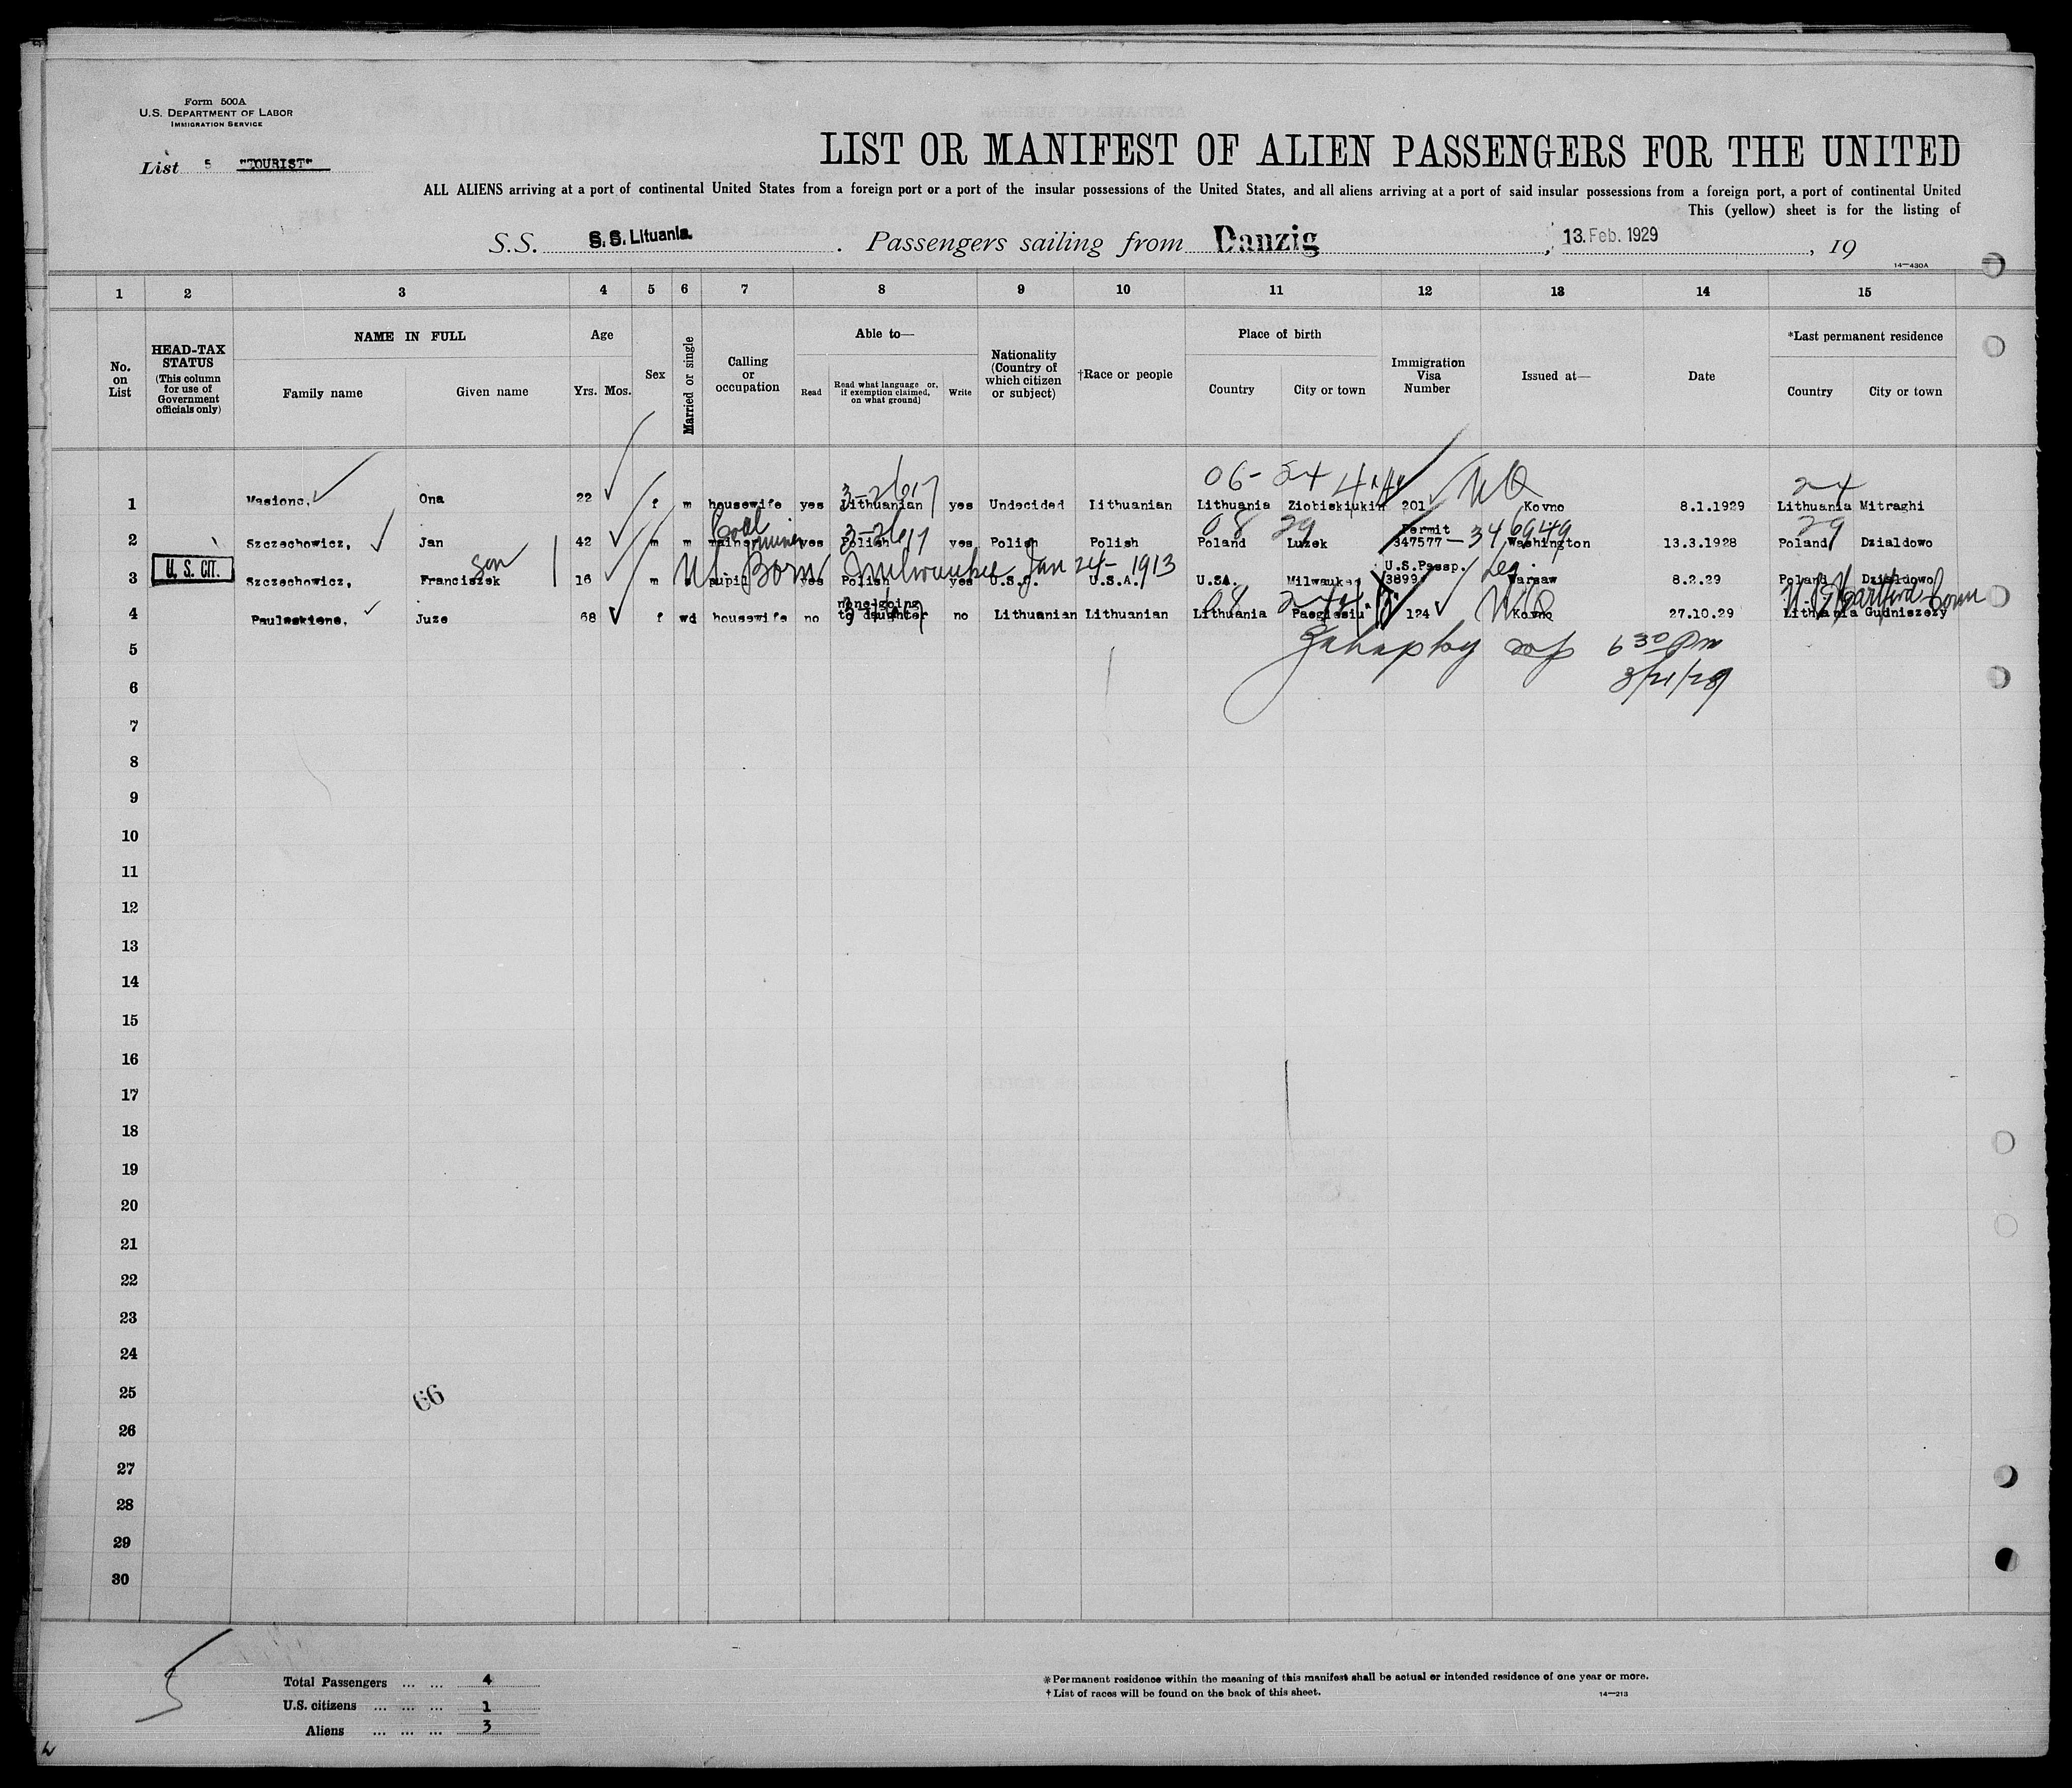 Form 500A
U.S. DEPARTMENT OF LABOR
IMMIGRATION SERVICE
List 5 "TOURIST"
LIST OR MANIFEST OF ALIEN PASSENGERS FOR THE UNITED
ALL ALIENS arriving at a port of continental United States from a foreign port or a port of the insular possessions of the United States, and all aliens arriving at a port of said insular possessions from a foreign port, a port of continental United
This (yellow) sheet is for the listing of
S.S. S.S. Lituania. Passengers sailing from Danzig, 13. Feb. 1929, 19
14—430A
1 2 3 4 5 6 7 8 9 10 11 12 13 14 15
No. on List
HEAD-TAX STATUS (This column for use of Government officials only)
NAME IN FULL
Family name Given name
Age
Yrs. Mos.
Sex
Married or single
Calling or occupation
Able to—
Read Read what language or, if exemption claimed, on what ground) Write
Nationality (Country of which citizen or subject)
†Race or people
Place of birth
Country City or town
Immigration Visa Number
Issued at—
Date
*Last permanent residence
Country City or town
06- 24
1 Ona 22 f m housewife yes Lithuanian yes Undecided Lithuanian Lithuania 201 Kovno 8.1.1929 Lithuania Mitraghi
Coal miner 08 29 Permit 29
2 Szczechowicz, Jan 42 m m yes Polish yes Polish Polish Poland Luzek 347577 — 346949 Washington 13.3.1928 Poland Dzialdowo
son US Born Milwaukee Jan 24 - 1913 U.S.Passp.
U. S. CIT.
3 Szczechowicz, Franciszek 16 m pupil yes Polish yes U.S.A. U.S.A. Milwaukee 3899 Warsaw 8.2.29 Poland Dzialdowo
none-going 08 Hartford Conn
4 Pauleskiene, Juze 68 f wd housewife no to daughter no Lithuanian Lithuanian Lithuania 124 Kovno 27.10.29 Lithuania Gudniszezy
5 6 30 Pm
6 3/21/29
7
8
9
10
11
12
13
14
15
16
17
18
19
20
21
22
23
24
25
66
26
27
28
29
30
Total Passengers ... ... 4
U.S. citizens ... ... ... 1
Aliens ... ... ... 3
*Permanent residence within the meaning of this manifest shall be actual or intended residence of one year or more.
†List of races will be found on the back of this sheet.
14—213